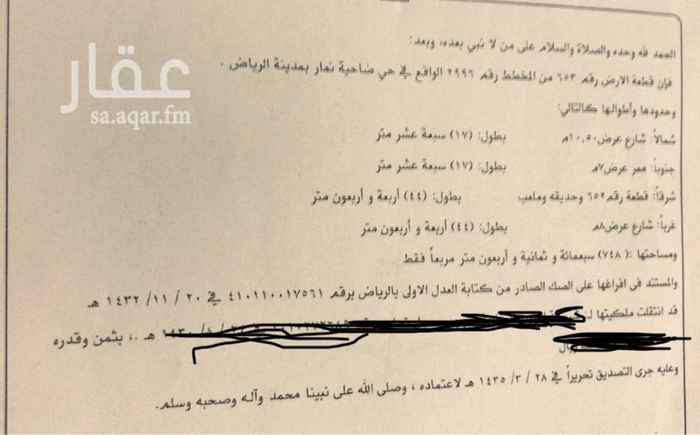 عقار
sa.aqar.fm
الحمد لله وحده والصلاة والسلام على من لا نبي بعده، وبعد:
فإن قطعة الارض رقم ٦٥٣ من المخطط رقم ٢٩٩٦ الواقع في حي ضاحية نمار بمدينة الرياض .
وحدودها وأطوالها كالتالي:
شمالاً: شارع عرض ١٠,٥٠م بطول: (١٧) سبعة عشر متر
جنوباً: ممر عرض ٧م بطول: (١٧) سبعة عشر متر
شرقاً: قطعة رقم ٦٥٢ وحديقه وملعب بطول: (٤٤) أربعة و أربعون متر
غرباً: شارع عرض ٨م بطول: (٤٤) أربعة و أربعون متر
ومساحتها : (٧٤٨) سبعمائة و ثمانية و أربعون متر مربعاً فقط
والمستند في افراغها على الصك الصادر من كتابة العدل الاولى بالرياض برقم ٤١٠١١٠٠١٧٥٦١ في ٢٠ / ١١ / ١٤٣٢ هـ
قد انتقلت ملكيتها لـ هـ ،، بثمن وقدره
ريال
وعليه جرى التصديق تحريراً في ٢٨ / ٣ / ١٤٣٥ هـ لاعتماده ، وصلى الله على نبينا محمد وآله وصحبه وسلم.